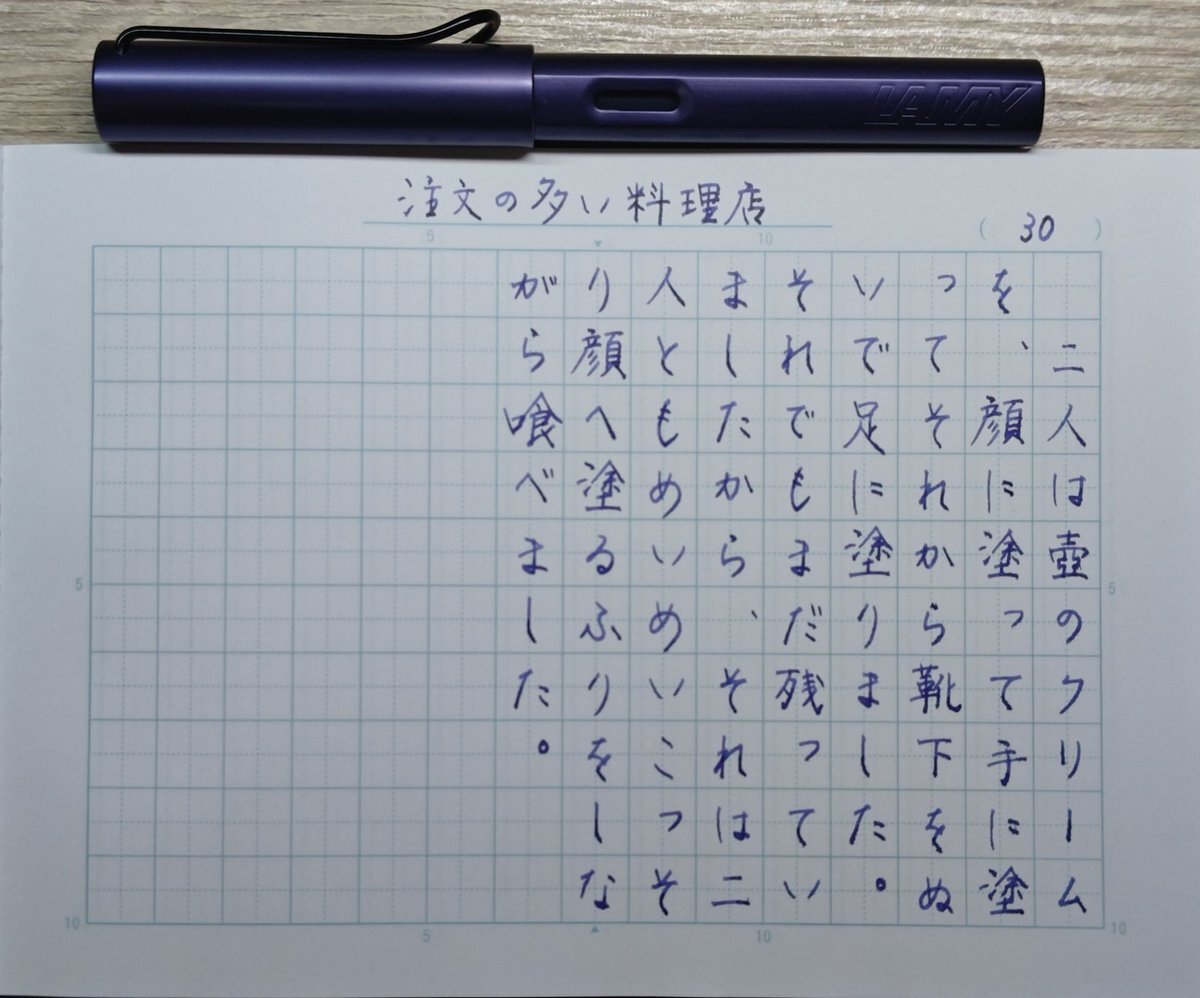 LAMY
注文の多い料理店
(30)
5 10
　二人は壺のクリーム
を、顔に塗って手に塗
ってそれから靴下をぬ
いで足に塗りました。
それでもまだ残ってい
ましたから、それは二
人ともめいめいこっそ
り顔へ塗るふりをしな
がら喰べました。
5
5
10
10
5 10